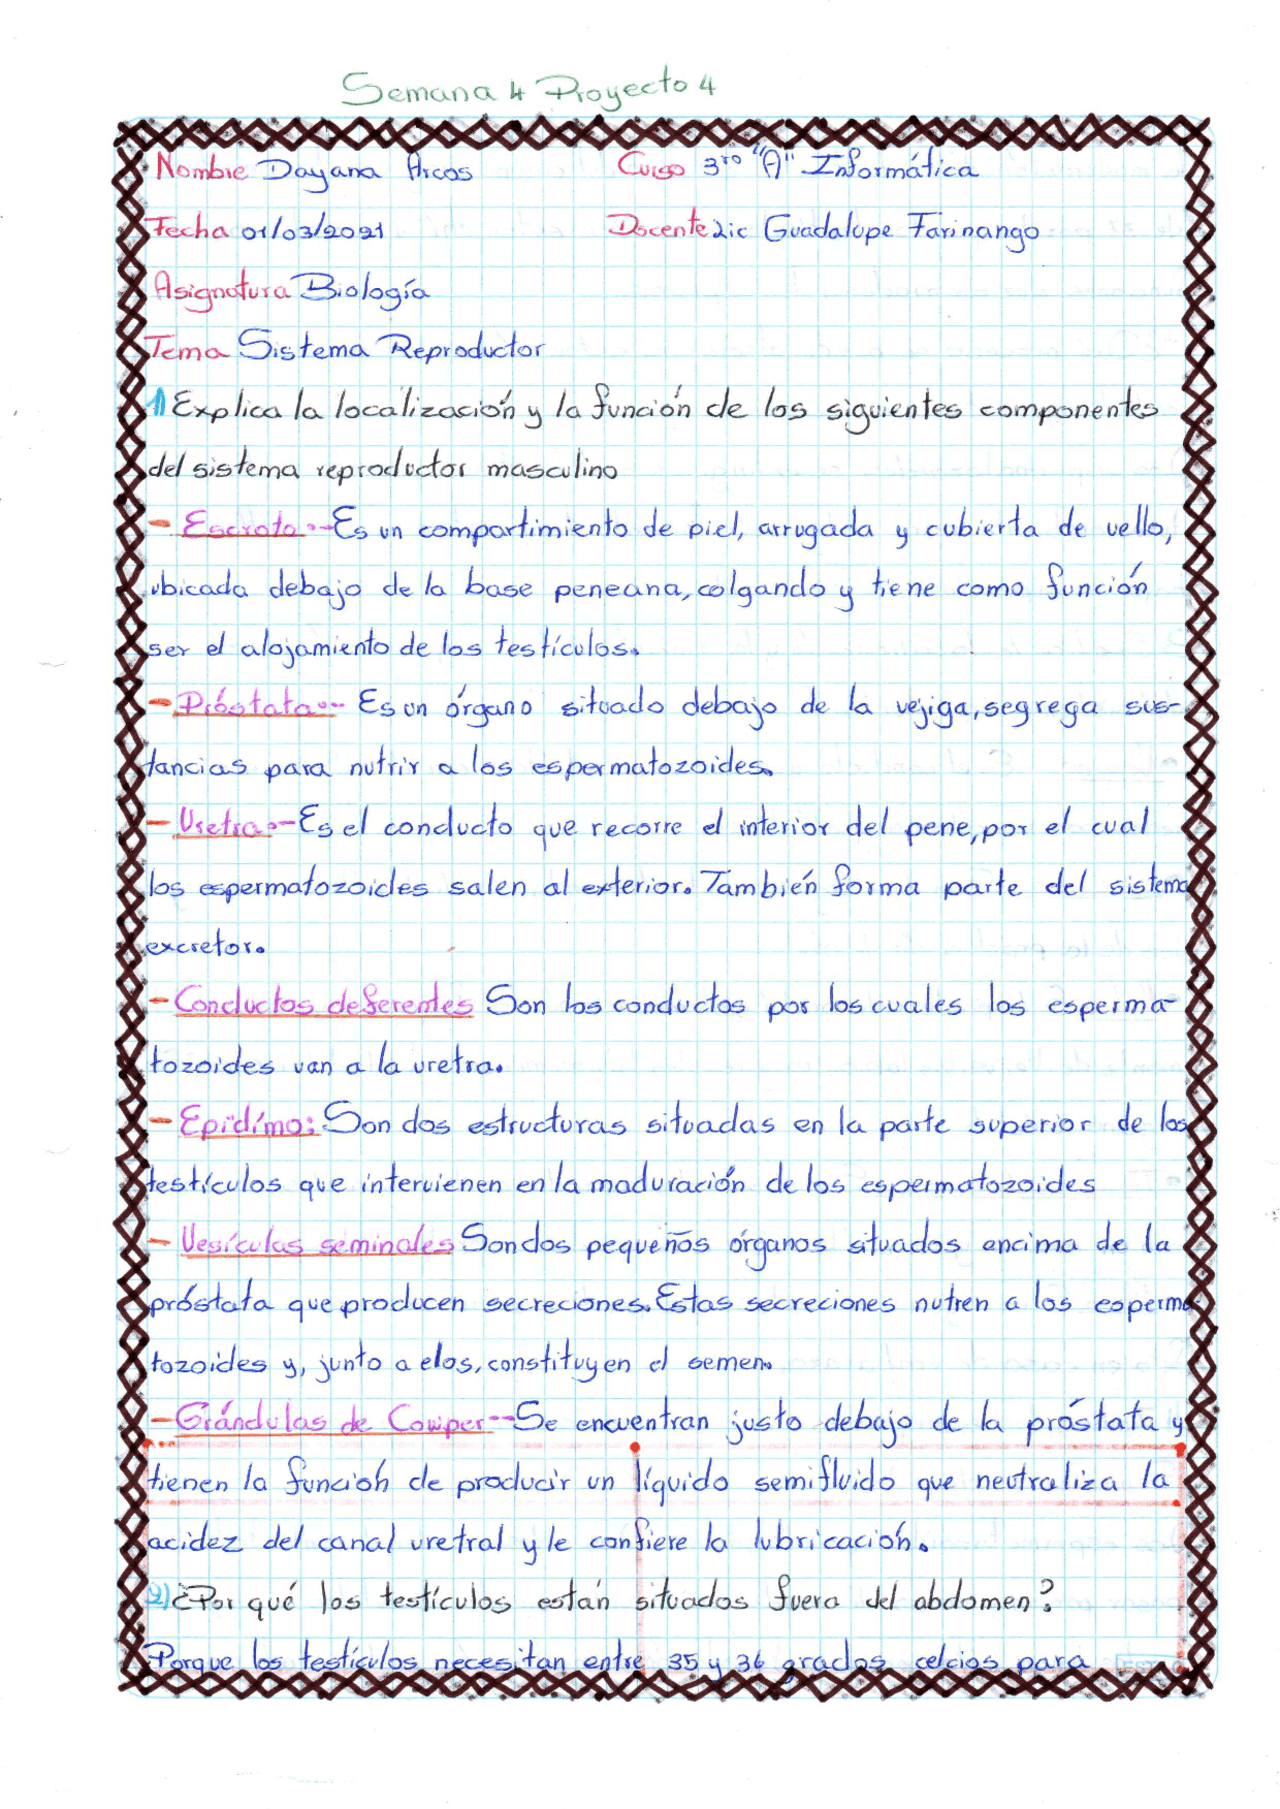 Semana 4 Proyecto 4
Nombre Dayana Arcos Curso 3ro "A" Informática
Fecha 01/03/2021 Docente Lic Guadalupe Farinango
Asignatura Biología
Tema Sistema Reproductor
1) Explica la localización y la función de los siguientes componentes
del sistema reproductor masculino
- Escroto.- Es un compartimiento de piel, arrugada y cubierta de vello,
ubicada debajo de la base peneana, colgando y tiene como función
ser el alojamiento de los testículos.
- Próstata.- Es un órgano situado debajo de la vejiga, segrega sus-
tancias para nutrir a los espermatozoides.
- Uretra.- Es el conducto que recorre el interior del pene, por el cual
los espermatozoides salen al exterior. También forma parte del sistema
excretor.
- Conductos deferentes Son los conductos por los cuales los esperma-
tozoides van a la uretra.
- Epidímo: Son dos estructuras situadas en la parte superior de los
testículos que intervienen en la maduración de los espermatozoides
- Vesículas seminales Son dos pequeños órganos situados encima de la
próstata que producen secreciones. Estas secreciones nutren a los esperma
tozoides y, junto a elos, constituyen el semen.
- Grándulas de Cowper-- Se encuentran justo debajo de la próstata y
tienen la función de producir un líquido semifluido que neutraliza la
acidez del canal uretral y le confiere la lubricación.
2) ¿Por qué los testículos están situados fuera del abdomen?
Porque los testículos necesitan entre 35 y 36 grados celcios para